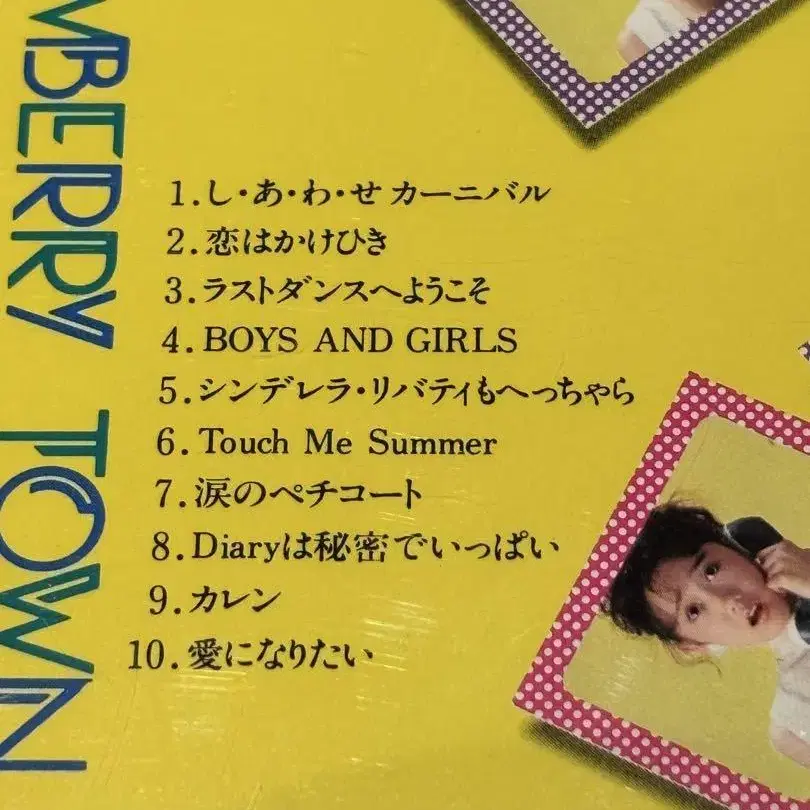 MBERRY TOWN
1.し・あ・わ・せ カーニバル
2.恋はかけひき
3.ラストダンスへようこそ
4.BOYS AND GIRLS
5.シンデレラ・リバティもへっちゃら
6.Touch Me Summer
7.涙のペチコート
8.Diaryは秘密でいっぱい
9.カレン
10.愛になりたい